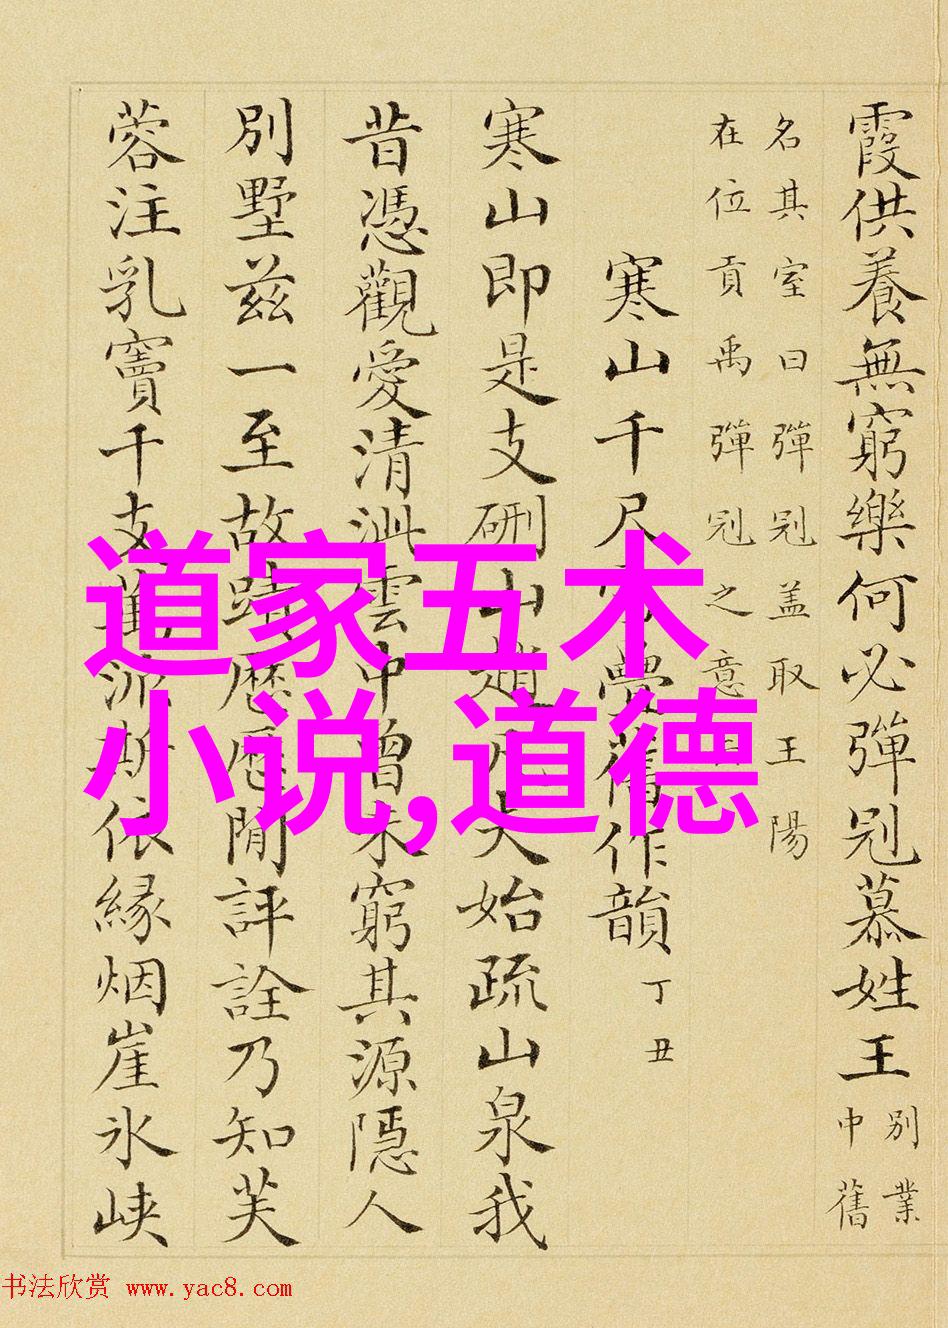 霞供養無窮樂何必彈冠慕姓王
別業
中舊
名其室曰彈冠盖取王陽
在位貢禹彈冠之意
寒山千尺疊舊作韻 丁丑
寒山即是支硎山趙夫始疏山泉我
昔憑觀愛清泚雲中曾未窮其源隱人
別墅兹一至故蹟歷歷閒評詮乃知芙
蓉注乳竇千支萬派斯依緣烟崖氷峽
道家五术
小说,道德
书法欣赏 www.yac8.com